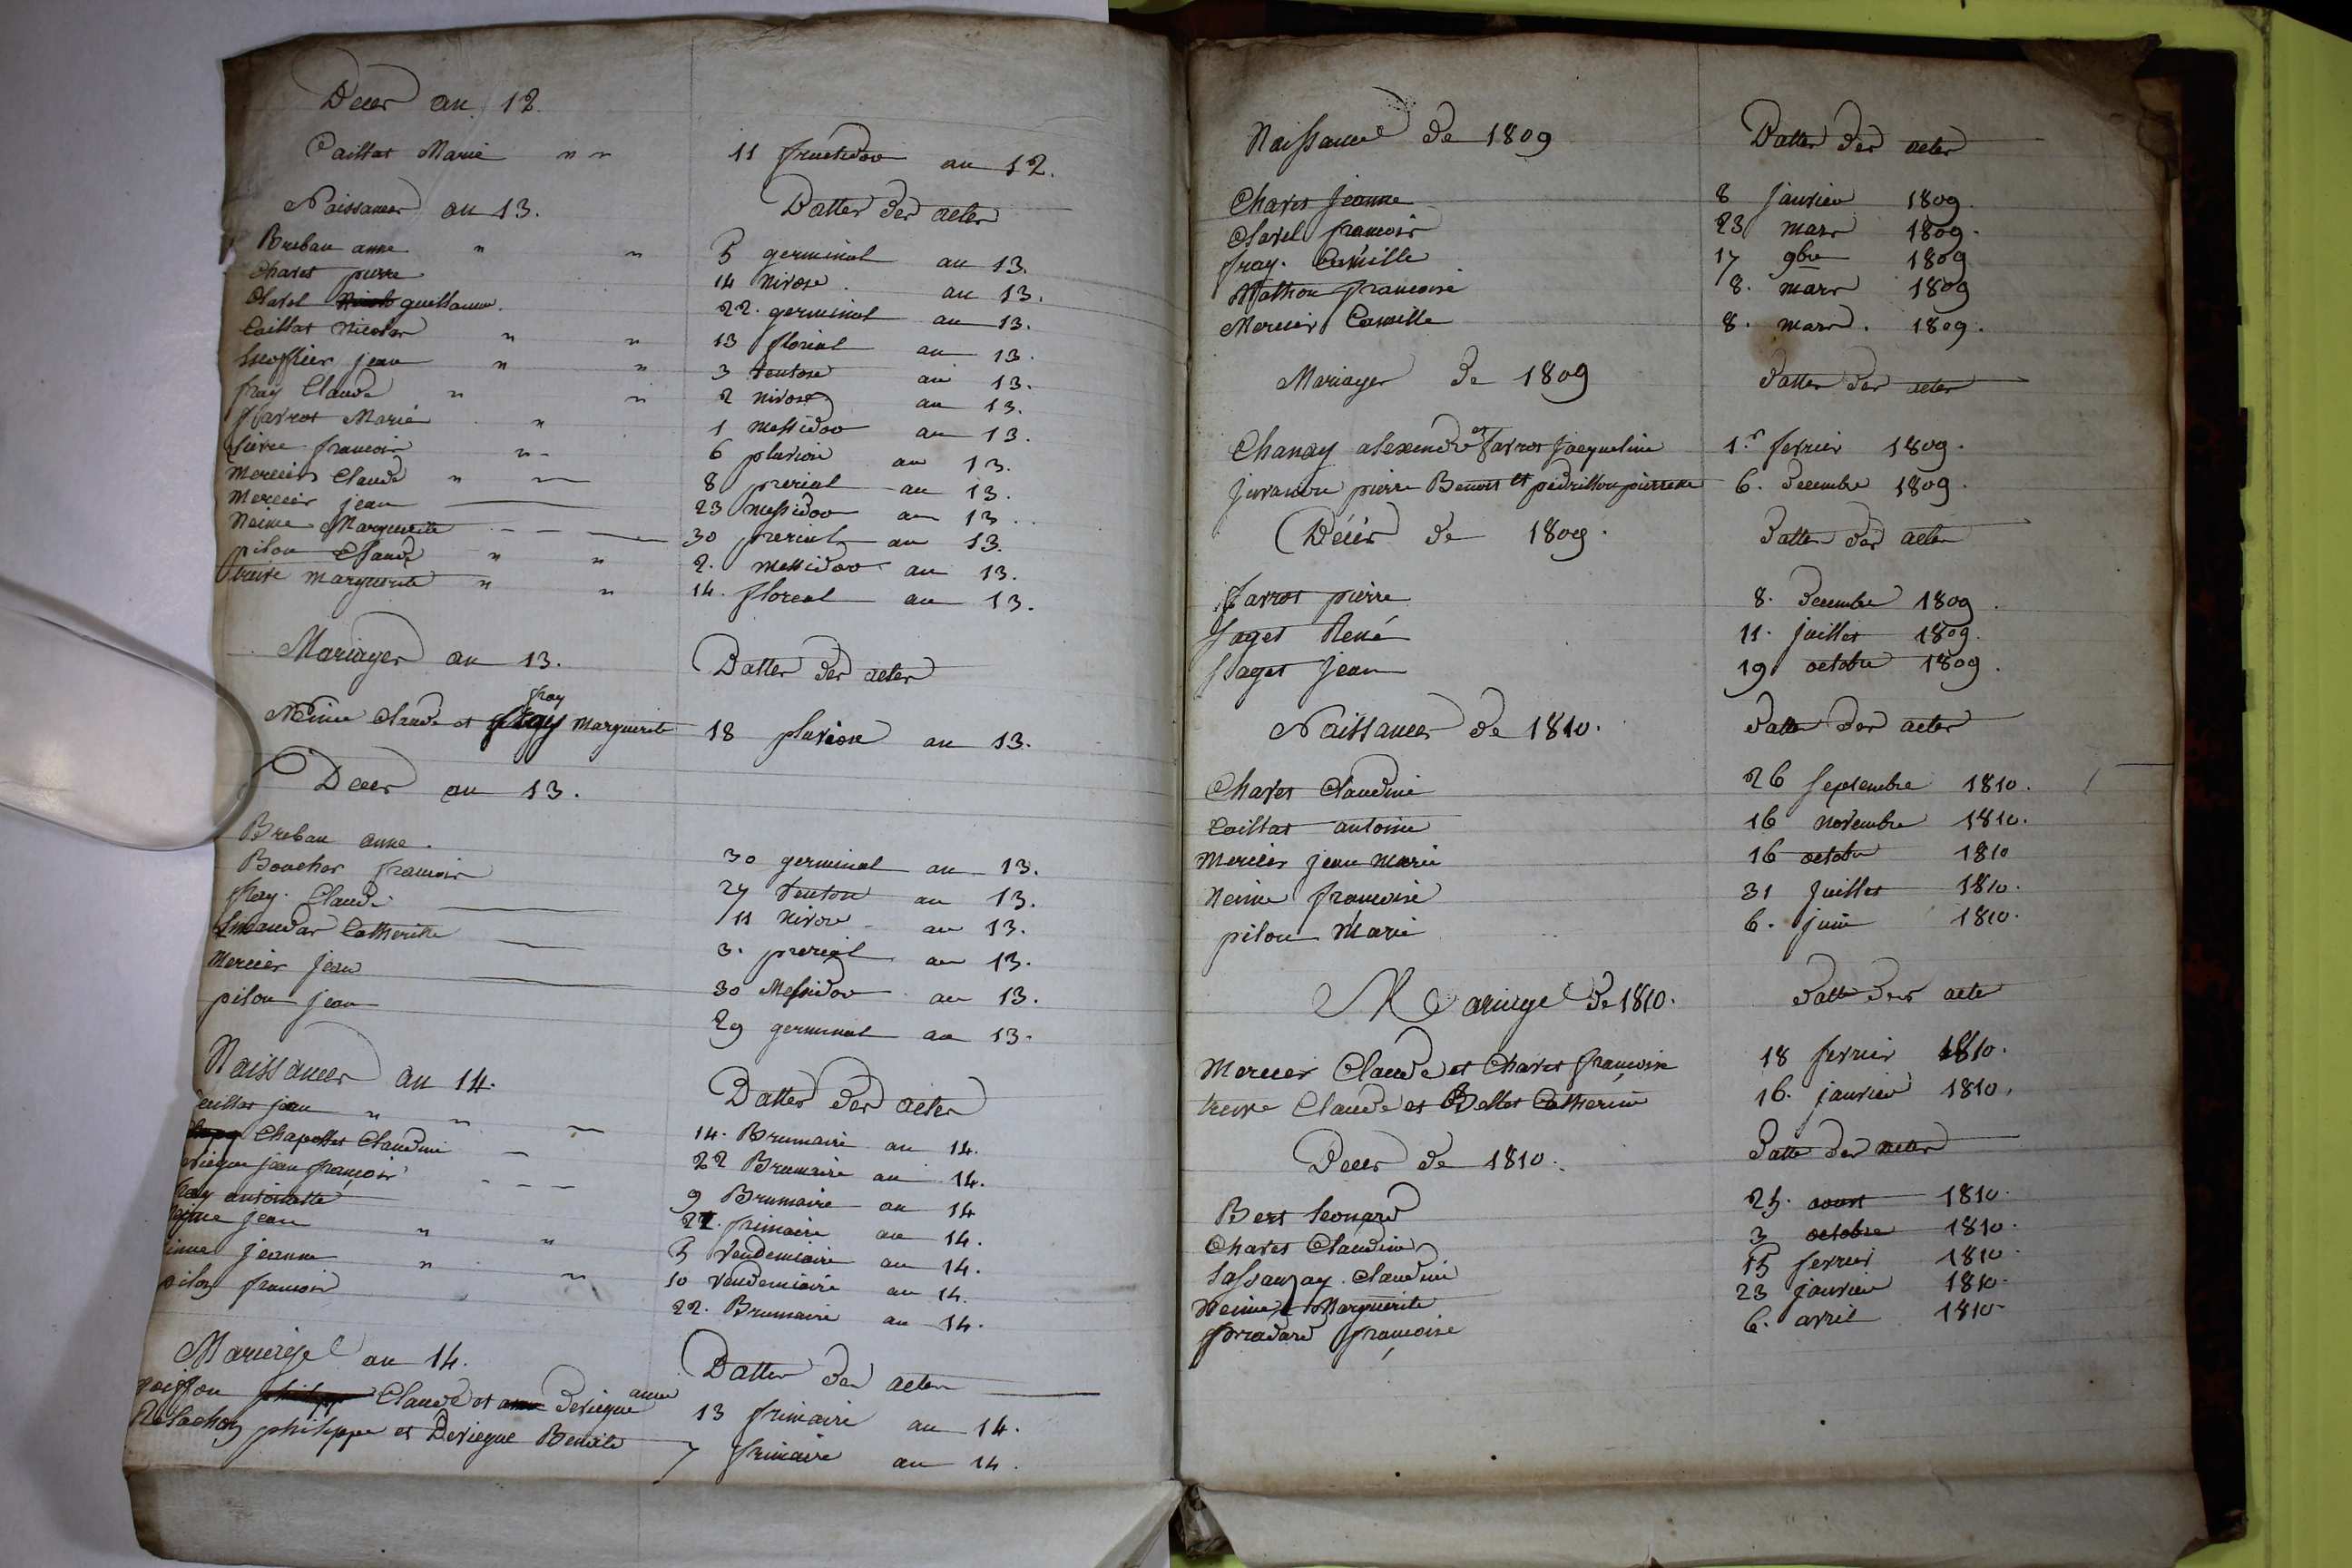 Deces an 12
Caillat Marie " " 11 fructidor an 12.
Naissances an 13. Dattes des actes
Breban anne " " 5 germinal an 13.
Chavet pierre 14 Nivose an 13.
Clavel guillaume 22. germinal an 13.
Caillat Nicolas " " 13 floreal an 13.
jean " " 3 Ventose an 13.
fray Claude " " 2 nivose an 13.
favrot Marie " 1 Messidor an 13.
francois " 6 pluviose an 13.
Mercier Claude " 8 prerial an 13.
Mercier jean 23 Messidor an 13.
Neime Marguerite 30 prerial an 13.
pilon Claude " " 2. Messidor an 13.
treive marguerite " " 14. floreal an 13.
Mariages an 13. Dattes des actes
fray
Neime Claude et fray Marguerite 18 pluviose an 13.
Deces an 13.
Breban anne. 30 germinal an 13.
Bouchar francois 27 Ventose an 13.
fray. Claude 11 Nivose an 13.
Catherine 3. prerial an 13.
Mercier jean 30 Messidor an 13.
pilon jean 29 germinal an 13.
Naissances an 14. Dattes des actes
Caillat jean " 14. Brumaire an 14.
Chapottet Claudine 22 Brumaire an 14.
jean françois 9 Brumaire an 14
fray antoinette 22. frimaire an 14.
jean " " 5 Vendemiaire an 14.
jeanne " 10 Vendemiaire an 14.
pilon francois 22. Brumaire an 14.
Mariage an 14. Dattes des actes
Claude et Deviegue anne 13 frimaire an 14.
philippe et Deviegue Benoite 7 frimaire an 14.
Naissance de 1809 Dattes des actes
Chavet jeanne 8 janvier 1809.
Clavel francois 23 mars 1809.
fray. Camille 17 9bre 1809
Mathon francoise 8. mars 1809
Mercier Camille 8. mars. 1809.
Mariages de 1809 dattes des actes
Chanay alexendre et favrot Jacqueline 1.r fevrier 1809.
pierre Benoit et pedrillon pierrette 6. decembre 1809.
Décés de 1809. dattes des actes
favrot pierre 8. decembre 1809.
Saget René 11. juillet 1809.
Saget jean 19 octobre 1809.
Naissances de 1810. datte des actes
Chavet Claudine 26 septembre 1810.
Caillat antoine 16 novembre 1810.
Mercier jean marie 16 octobre 1810
Neime francoise 31 juillet 1810.
pilon Marie 6. juin 1810.
Mariage de 1810. datte des actes
Mercier Claude et Chavet françoise 18 fevrier 1810.
treive Claude et Bellet Catherine 16. janvier 1810.
Deces de 1810. datte des actes
Bert Leonard 25. aoust 1810.
Chavet Claudine 3 octobre 1810.
Lassauzay. Claudine 15 fevrier 1810.
Neime Marguerite 23 janvier 1810.
pradard françoise 6. avril 1810.